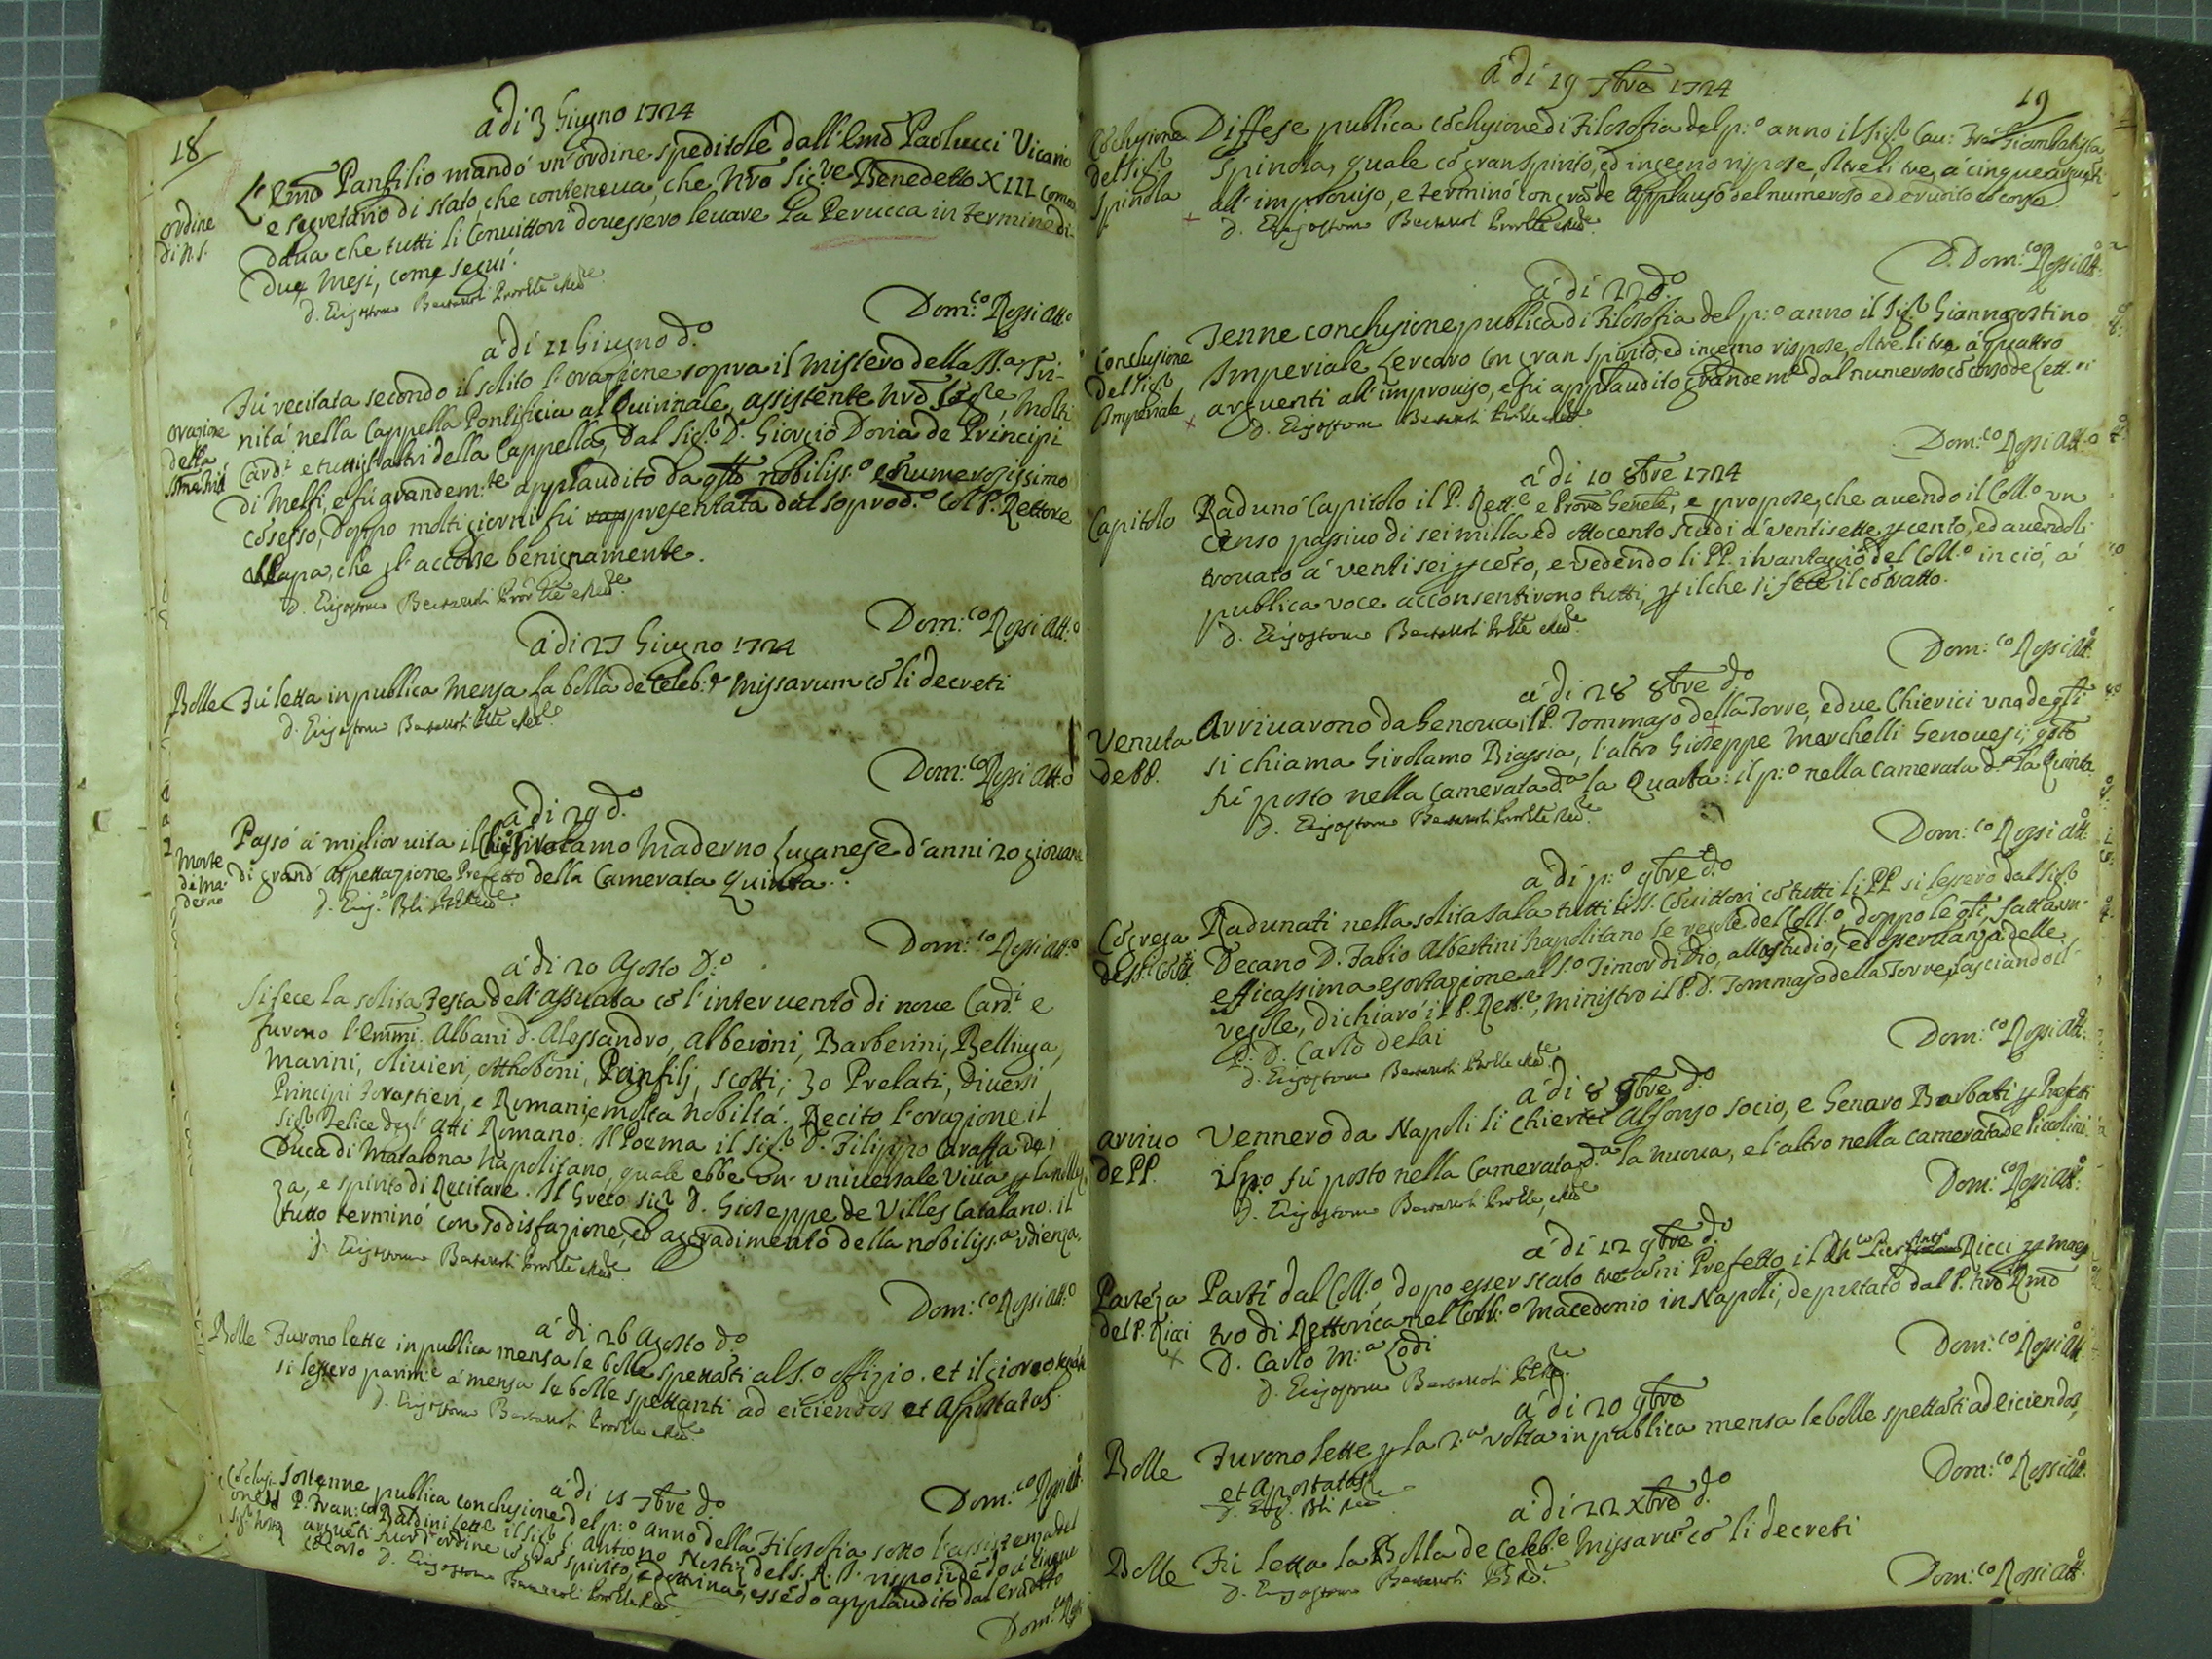 18
á di 3 Giugno 1724
ordine
di N.S.
L'Emō Panfilio mandó un'ordine speditole dall'Emō Paolucci Vicario
e segretario di stato, che conteneva, che Nrō Sig.re Benedetto XIII coman
dava che tutti li Convittori dovessero levare la Perucca in termine di
due Mesi, come seguí.
Dom.co Rossi Att.o
á di 11 Giugno d.o
orazione
della
Fú recitata secondo il solito l'orazione sopra il mistero della SS.a Tri-
nitá nella Cappella Pontificia al Quirinale, assistente Nrō Sig.re, molti
Card.i e tutti gl'altri della Cappella, dal Sig.r D. Giorgio Doria de Principi
di Melfi, e fú grandem.te applaudito da qto nobiliss.o e numerosissimo
cōsesso, doppo molti giorni fú rappresentata dal soprad.o Col P. Rettore
al Papa, che gl'accolse benignamente.
Dom.co Rossi Att.o
á di 27 Giugno 1724
Bolle
Fú letta in publica mensa la bolla de Celeb.e Missarum cō li decreti
Dom.co Rossi Att.o
á di 29 d.o
Morte
di Ma-
derno
Passó á miglior vita il Girolamo Maderno Luganese d'anni 20 giovane
di grand' aspettazione Prefetto della Camerata Quinta.
Dom.co Rossi Att.o
á di 20 Agosto D.o
Si fece la solita Festa dell'Assunta cō l'intervento di nove Card.i e
furono l'Emmi Albani d. Alessandro, Alberoni, Barberini, Belluga,
Marini, Olivieri, Otthoboni, Panfilj, Scotti; 30 Prelati, Diversi
Principi Forastieri, e Romani, e molta nobiltá. Recitò l'orazione il
Sig.r Felice degl'Atti Romano. Il Poema il Sig.r D. Filippo Caraffa de i
Duca di Matalona Napolitano, quale ebbe un' universale Viva
za, e spirito di Recitare. Il Greco Sig.r D. Gioseppe de Villes Catalano: il
tutto terminó con Sodisfazione, ed aggradimento della nobiliss.a udienza.
Dom.co Rossi Att.o
á di 26 Agosto d.o
Bolle
Furono lette in publica mensa le bolle spettāti al S.o offizio. et il giorno
si lessero parim.e á mensa le bolle spettanti ad eiciendos et Apostatas
Dom.co Rossi Att.
á di 15 7bre d.o
Sostenne publica conclusione del p.o anno della Filosofia sotto l'assistenza del
P. Fran.co Baldini Lett.e il Sig.r Antonio rispondēdo á cinque
arguēti fuor d'ordine cō spirito, e dottrina, essēdo applaudito dal erudito
cōcorso
Dom.co Rossi
á di 19 7bre 1724
19
Cōclusione
del Sig.r
Spinola
Diffese publica cōclusione di Filosofia del p.o anno il Sig.r Cav: Frá Giambatista
Spinola, quale cō gran Spirito, ed ingegno rispose, oltre li tre, á cinque arguēti
all'improviso, e terminó con grāde Applauso del numeroso ed erudito cōcorso
D. Dom.co Rossi Att.
á di 22 d.o
Conclusione
del Sig.r
Imperiale
Tenne conclusione publica di Filosofia del p.o anno il Sig.r Giannagostino
Imperiale Lercaro con gran spirito, ed ingegno rispose, oltre li tre á quattro
arguenti all'improviso, e fú applaudito grandem.e dal numeroso cōcorso de Lett.ri
Dom.co Rossi Att.o
á di 10 8bre 1724
Capitolo
Radunó Capitolo il P. Rett.e e Provō Genēle, e propose, che avendo il Coll.o un
Censo passivo di sei milla ed ottocento scudi á ventisette p cento, ed avendoli
trovato á ventisei p cēto, e vedendo li PP. il vantaggio del Coll.o in ció, á
publica voce acconsentirono tutti, p il che si fece il cōtratto.
Dom.co Rossi Att.
á di 28 8bre d.o
Venuta
de PP.
Arrivarono da Genova il P. Tommaso della Torre, e due Chierici uno de qli
si chiama Girolamo Biassia, l'altro Gioseppe Marchelli Genovesi; qsto
fú posto nella Camerata d.a la Quarta: il p.o nella Camerata d.a la Quinta
Dom.co Rossi Att.
á di p.o 9bre d.o
Radunati nella solita Sala tutti li SS. Cōvittori cō tutti li PP. si lessero dal Sig.r
Decano D. Fabio Albertini Napolitano le regole del Coll.o, doppo le qli, fatta un'
efficassima esortazione al S.o Timor di Dio, allo studio, ed osservanza delle
regole, dichiaró il P. Rett.e, Ministro il P. D. Tommaso della Torre, lasciando il
P. D. Carlo delai
Dom.co Rossi Att.
á di 8 9bre d.o
arrivo
de PP.
Vennero da Napoli li Chierici Alfonso Socio, e Genaro Barbati p Prefetti
il p.o fú posto nella Camerata d.a la nuova, e l'altro nella Camerata de Piccolini.
Dom.co Rossi Att.
á di 12 9bre d.o
Partēza
del P. Ricci
Partí dal Coll.o dopo esser stato tre āni Prefetto il Ch.co Pier Ant.o Ricci p maes
tro di Rettorica nel Coll.o Macedonio in Napoli, deputato dal P. Nrō Rmō
D. Carlo M.a Lodi
Dom.co Rossi Att.
á di 20 9bre
Bolle
Furono lette p la 2.a volta in publica mensa le bolle spettāti ad eiciendos,
et Apostatas
Dom.co Rossi Att.
á di 22 Xbre d.o
Bolle
Fú letta la Bolla de Celeb.e Missarū cō li decreti
Dom.co Rossi Att.